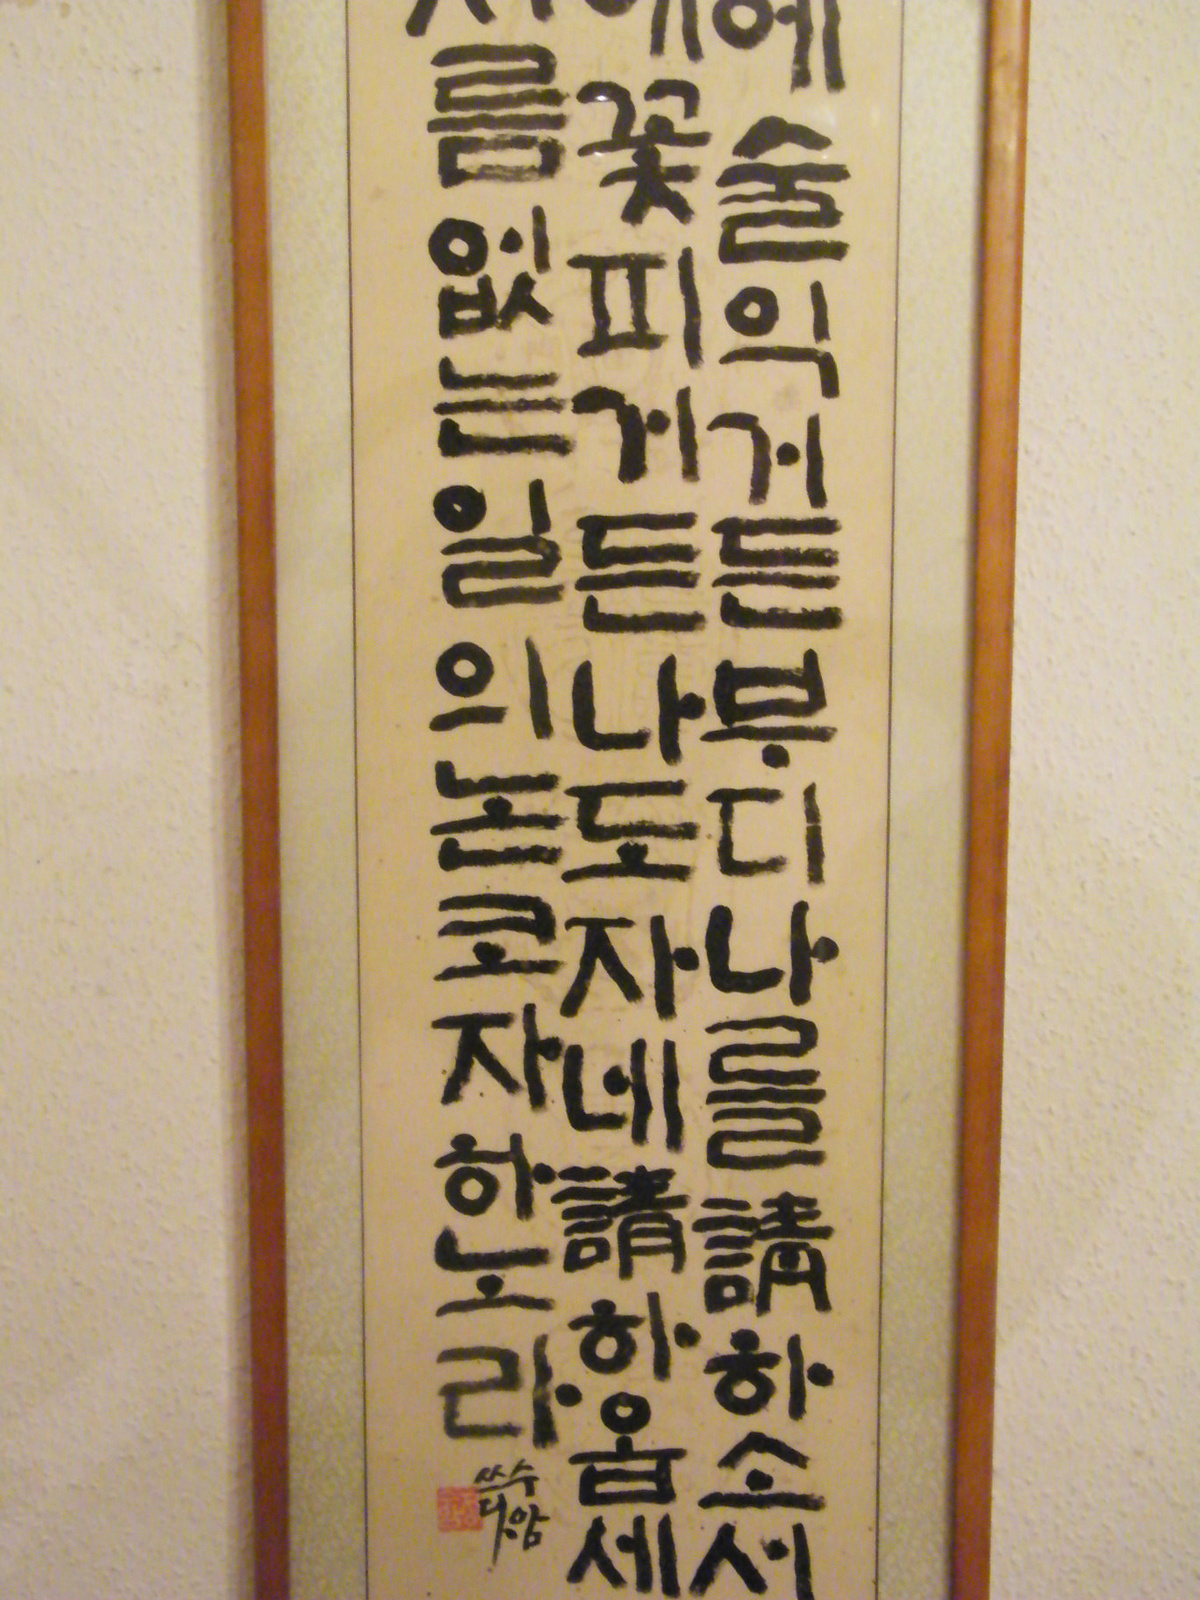 에 술 익거든 부디 나를 請하소서
에 꽃 피거든 나도 자네 請하옵세
시름 없는 일 의논코자 하노라
수암
쓰다